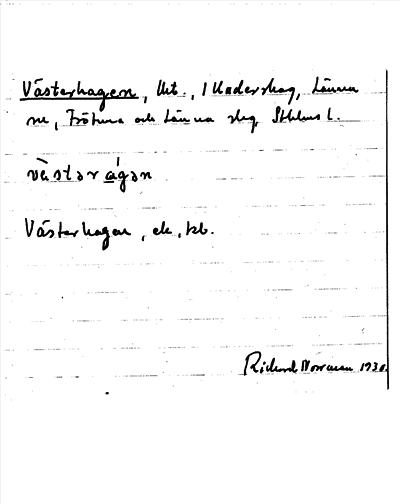 Västerhagen, lht., i Haderskog, Länna
sn, Frötuna och Länna slg Sthlms l.
vàstər ágən
Västerhagen, ek, kb.
Rickard Norrman 1930.